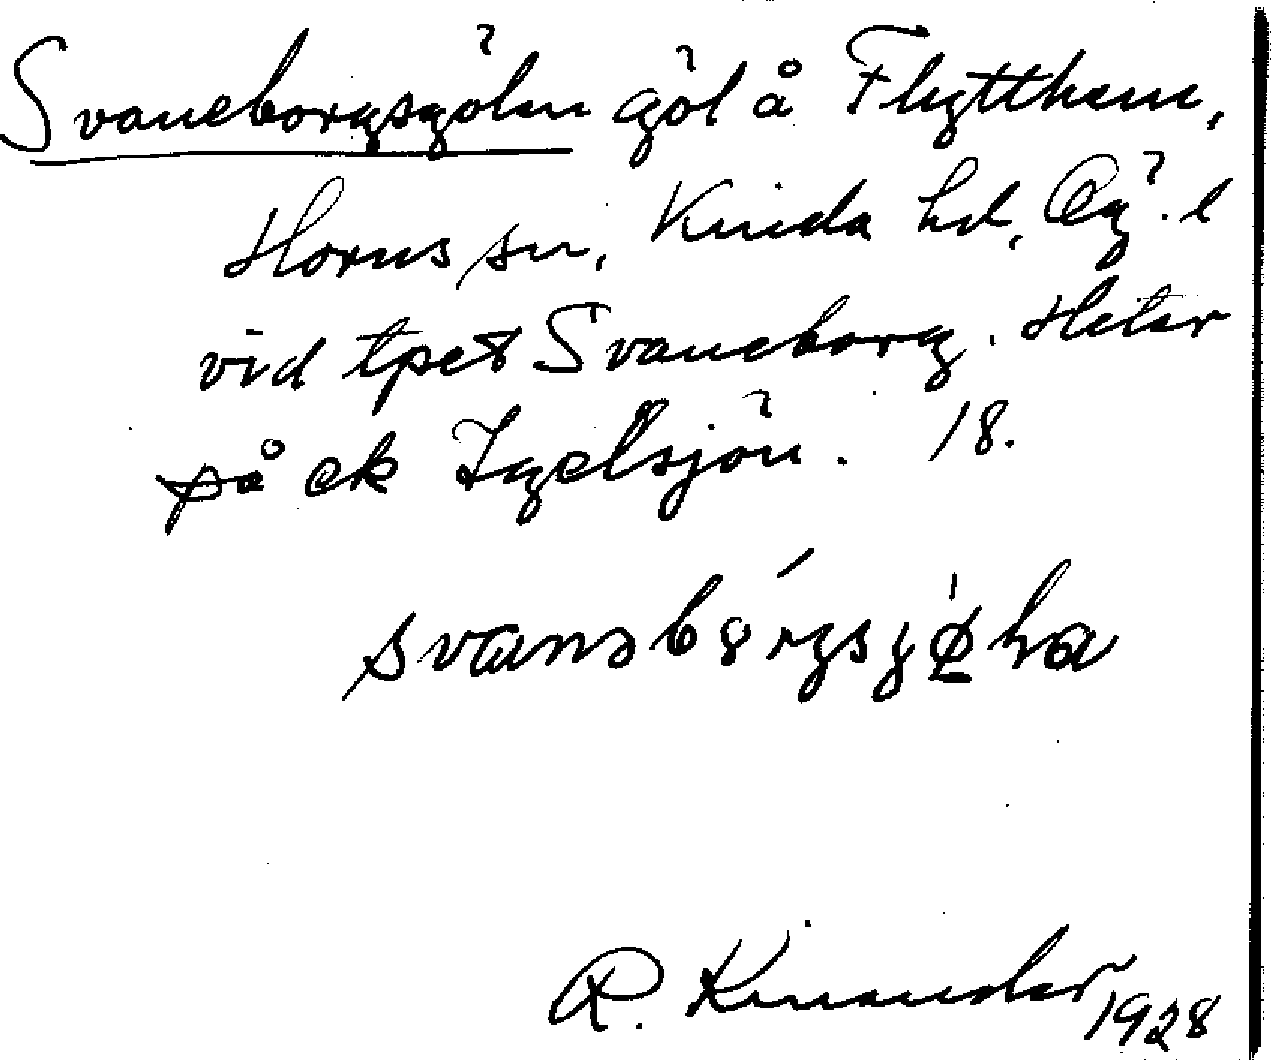 Svaneborgsgölen göl å Flytthem,
Horns sn, Kinda hd, Ög. l
vid tpet Svaneborg. Heter
på ek Igelsjön. 18.
R. Kinander 1928